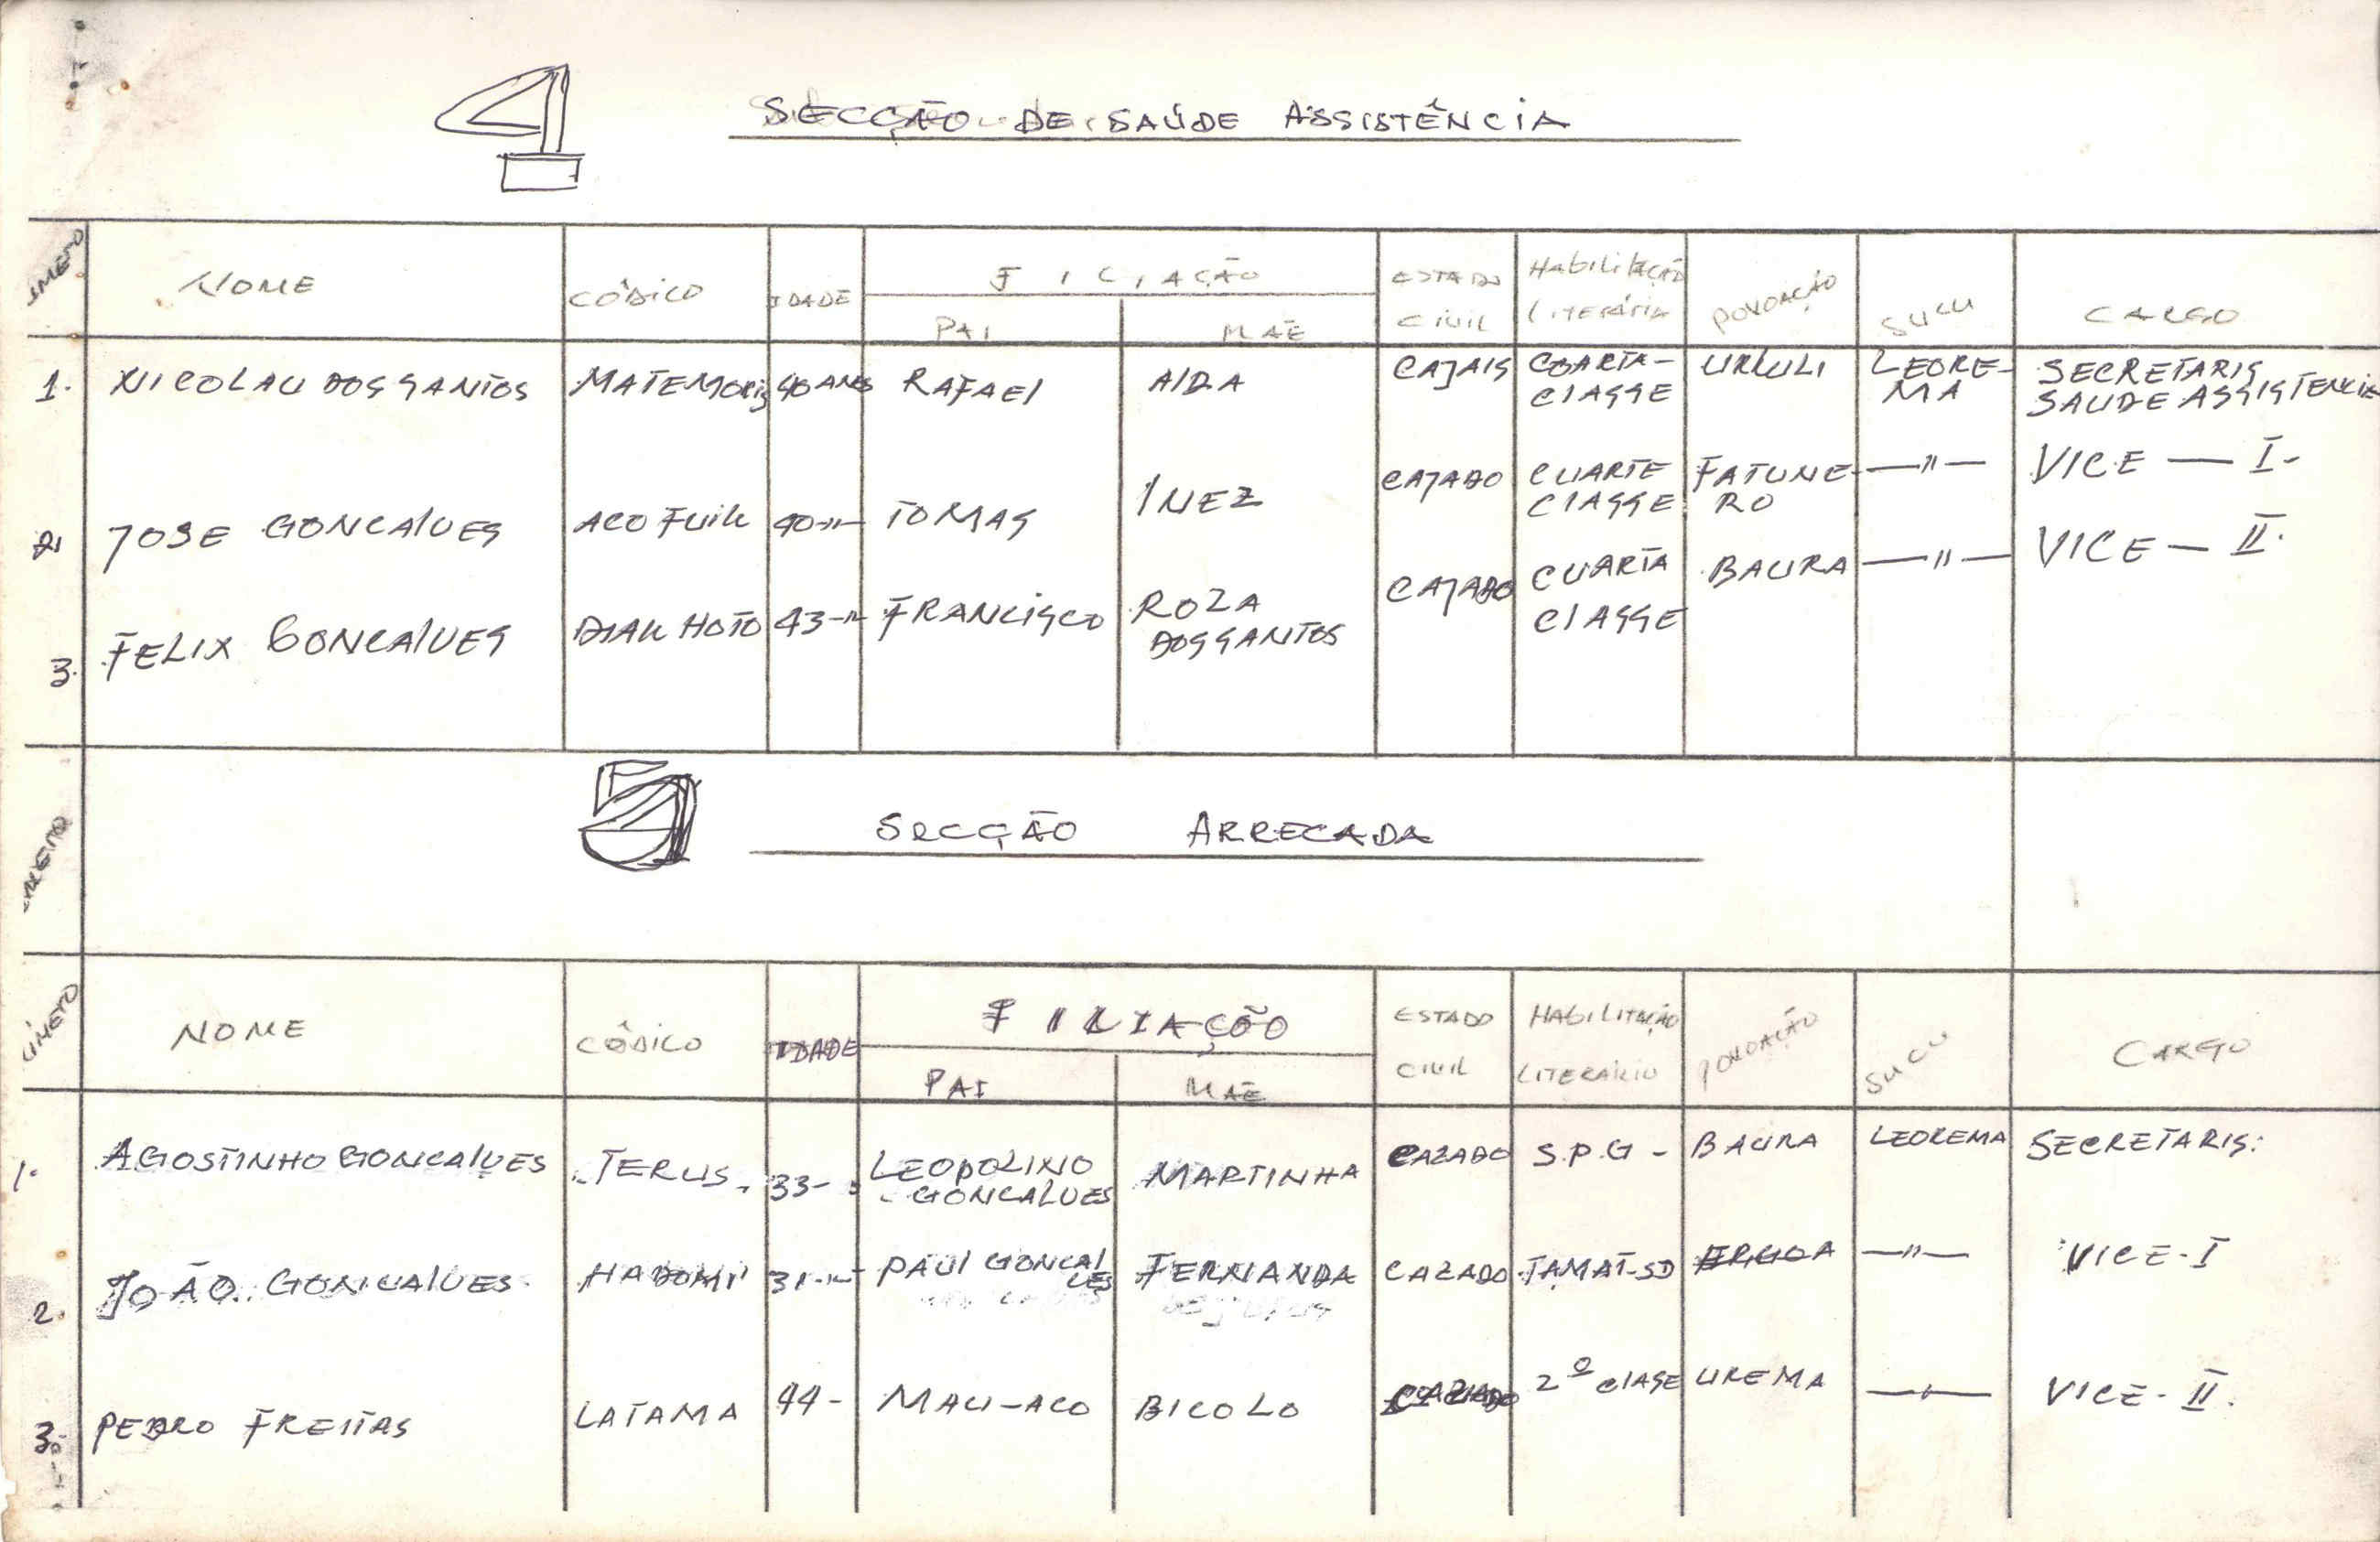 4
SECÇÃO DE SAÚDE ASSISTÊNCIA
NOME CÓDICO IDADE FILIAÇÃO ESTADO CIVIL Habilitação LITERÁRIA POVOAÇÃO SUCU CARGO
PAI MAE
1. NICOLAU DOS SANTOS 40 ANOS RAFAEL AIDA CUARTA- CLASSE URLULI LEORE-MA SECRETARIS SAUDE ASSISTENCIA
2. JOSE GONCALVES ACO FUIK 40-"- TOMAS INEZ CAJADO CUARTE CLASSE FATUNE-RO —"— VICE — I-
3. FELIX GONCALVES DIAK HOTO 43-"- FRANCISCO ROZA DOS SANTOS CAJADO CUARTA CLASSE BAURA —"— VICE — II.
5
SECÇÃO ARRECADA
NOME CÔDICO IDADE FILIAÇÕO ESTADO CIVIL HABILITAÇÃO LITERÁRIO POVOAÇÃO SUCU CARGO
PAI MAE
1. AGOSTINHO GONCALVES TERUS. 33- LEOPOLINO GONCALVES MARTINHA CAZADO S.P.G - BAURA LEOREMA SECRETARIS:
2. JOÃO GONCALVES 31-"- PAUL GONCALVES FERNANDA CAZADO TAMAT-SD —"— VICE-I
3. PEDRO FREITAS LATAMA 44- MAU-ACO BICOLO 2º CLASE UREMA —"— VICE- II.